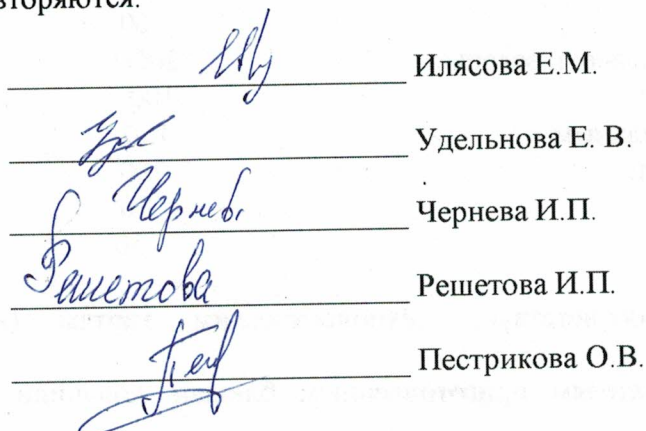 вторяются.
Илясова Е.М.
Уде Удельнова Е. В.
Чернев. Чернева И.П.
Решетова Решетова И.П.
Пестрикова О.В.